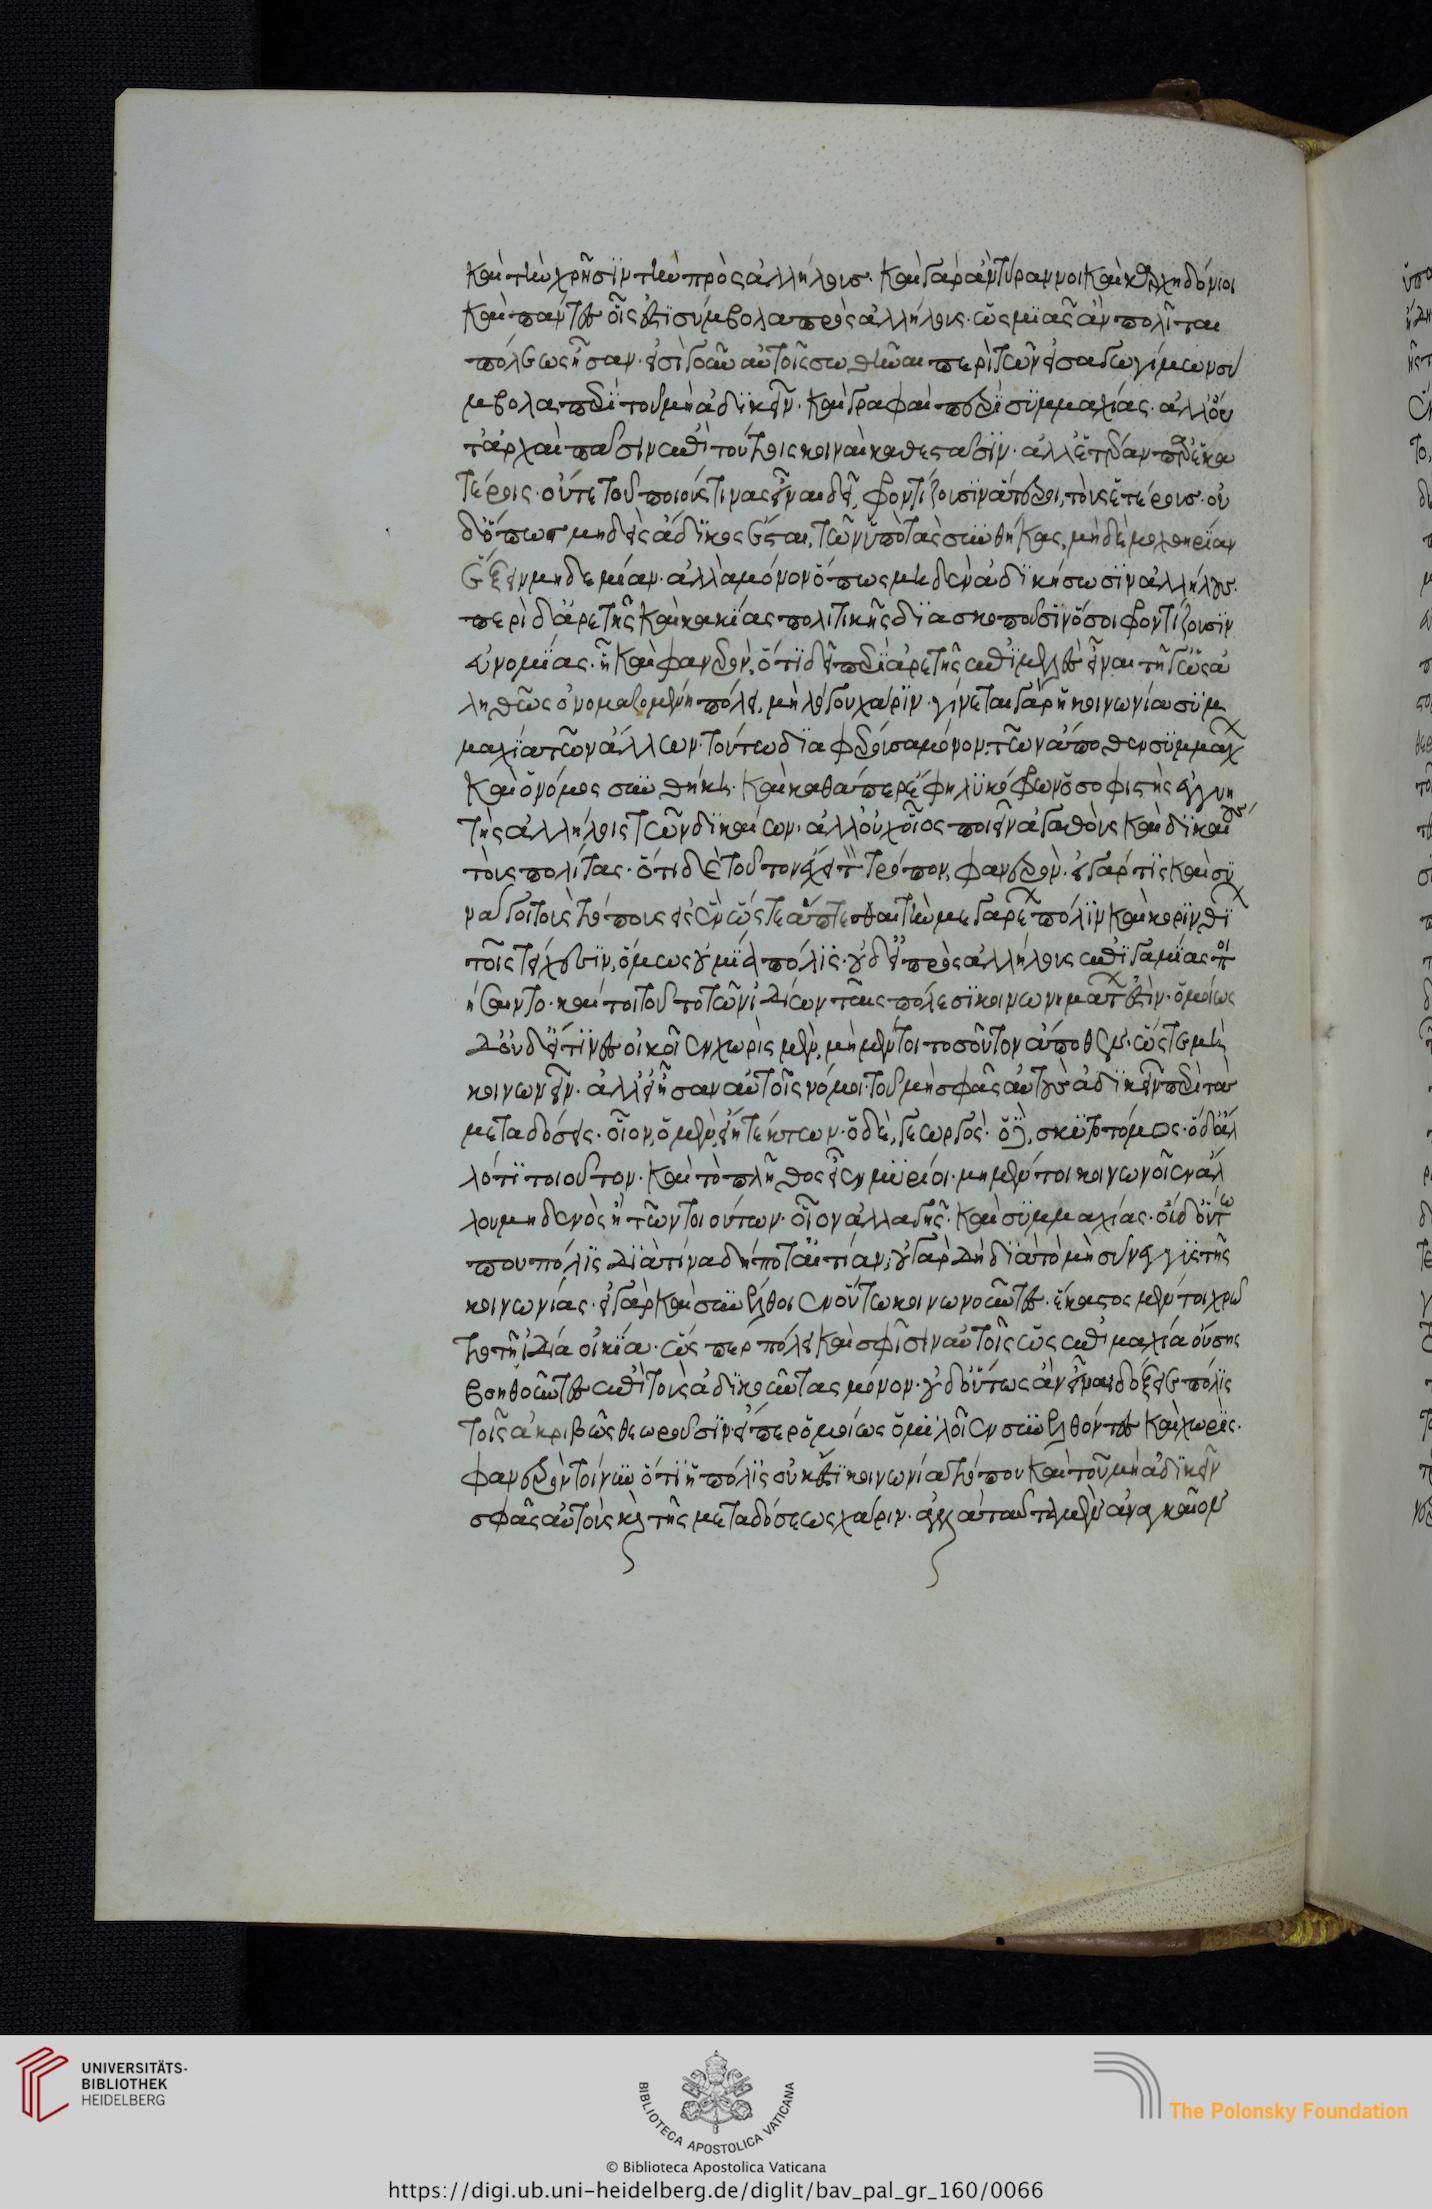 καὶ τὴν χρῆσϊν τὴν πρὸς ἀλλήλους· καὶ γὰρ ἂν τύραννοι καὶ καλχηδόνιοι
καὶ πάντες οἷς ἐστϊ σύμβολα πρὸς ἀλλήλους· ὡς μϊᾶς ἂν πολῖται
πόλεως ἦσαν· εἰσὶ γοῦν αὐτοῖς συνθῆκαι περὶ τῶν εἰσαγωγίμων συ
μβολα περὶ τοῦ μὴ ἀδϊκεῖν· καὶ γραφαὶ περὶ συμμαχίας· ἀλλ' οὔ
τ' ἀρχαὶ πᾶσιν ἐπὶ τούτοις κοιναὶ καθεστᾶσϊν· ἀλλ' ἕτεραι παρ' ἑκα
τέροις· οὔτε τοῦ ποιούς τινας εἶναι δεῖ, φροντίζουσϊν ἅτεροι, τοὺς ἑτέρους· οὐ
δ' ὅπως μηδεὶς ἄδϊκος ἔσται, τῶν ὑπὸ τὰς συνθήκας, μηδὲ μοχθηρίαν
ἕξειν μηδεμίαν· ἀλλὰ μόνον ὅπως μηδὲν ἀδϊκήσωσϊν ἀλλήλους·
περὶ δ' ἀρετῆς καὶ κακίας πολιτικῆς δϊασκοποῦσϊν ὅσοι φροντίζουσϊν
εὐνομίας· ἧ καὶ φανερὸν, ὅτϊ δεῖ περὶ ἀρετῆς ἐπϊμελὲς εἶναι τῇ γ' ὡς ἀ
ληθῶς ὀνομαζομένη πόλει, μὴ λόγου χάρϊν· γίνεται γὰρ ἡ κοινωνία συμ
μαχία τῶν ἄλλων· τόπω δϊαφέρουσα μόνον, τῶν ἄποθεν συμμάχ
καὶ ὁ νόμος συνθήκη· καὶ καθάπερ ἔφη λυκόφρων ὁ σοφιστὴς ἐγγυη
τὴς ἀλλήλοις τῶν δϊκαίων· ἀλλ' οὐχ οἷος ποιεῖν ἀγαθοὺς καὶ δϊκαίους
τοὺς πολίτας· ὅτι δὲ τοῦτον ἔχει τ̀ τρόπον, φανερὸν· εἰ γάρ τις καὶ συ
ναγάγοι τοὺς τόπους εἰς ἓν ὥστε ἅπτεσθαι τὴν μεγαρέχ πόλϊν καὶ κορϊνθϊχ
τοῖς τείχεσϊν, ὅμως οὐ μία πόλϊς· οὐδ' εἰ πρὸς ἀλλήλους ἐπϊγαμίας ποι
ήσαιντο· καί τοι τοῦτο τῶν ἰδίων ταῖς πόλεσϊ κοινωνημάτχ ἐστὶν· ὁμοίως
δ' οὐδ' εἴ τϊνες οἰκοῖεν χωρὶς μὲν, μὴ μέντοι τοσοῦτον ἄποθεν· ὥστε μὴ
κοινωνεῖν· ἀλλ' εἰ ἦσαν αὐτοῖς νόμοι· τοῦ μὴ σφᾶς αὐτοὺς ἀδϊκεῖν περὶ τὰς
μεταδόσεις· οἷον, ὁ μὲν, εἴη τέκτων· ὁ δὲ, γεωργὸς· ὁ δὲ, σκυτοτόμος· ὁ δ' ἄλ
λό τϊ τοιοῦτον· καὶ τὸ πλῆθος εἶεν μύριοι· μὴ μέντοι κοινωνοῖεν ἄλ
λου μηδενὸς ἢ τῶν τοιούτων· οἷον ἀλλαγῆς· καὶ συμμαχίας· οὐδ' οὕτω
που πόλϊς δϊὰ τίνα δή ποτ' αἰτίαν; οὐ γὰρ δὴ διὰ τὸ μὴ συνεγγὺς τῆς
κοινωνίας· εἰ γὰρ καὶ συνέλθοιεν οὕτω κοινωνοῦντες· ἕκαστος μέντοι χρῶ
το τῇ ἰδία οἰκία· ὥσπερ πόλει καὶ σφίσιν αὐτοῖς ὡς ἐπιμαχία οὔσης
βοηθοῦντες ἐπὶ τοὺς ἀδικοῦντας μόνον· οὐδ' οὕτως ἂν εἶναι δόξειε πόλϊς
τοῖς ἀκριβῶς θεωροῦσϊν· εἴπερ ὁμοίως ὁμϊλοῖεν συνελθόντες καὶ χωρὶς·
φανερὸν τοίνυν ὅτϊ ἡ πόλϊς οὐκ ἔστϊ κοινωνία τόπου καὶ τοῦ μὴ ἀδϊκεῖν
σφᾶς αὐτοὺς κ̀ τῆς μεταδόσεως χάριν· ἀλλὰ ταῦτα μὲν ἀναγκαῖον
UNIVERSITÄTS-
BIBLIOTHEK
HEIDELBERG
BIBLIOTECA APOSTOLICA VATICANA
© Biblioteca Apostolica Vaticana
The Polonsky Foundation
https://digi.ub.uni-heidelberg.de/diglit/bav_pal_gr_160/0066